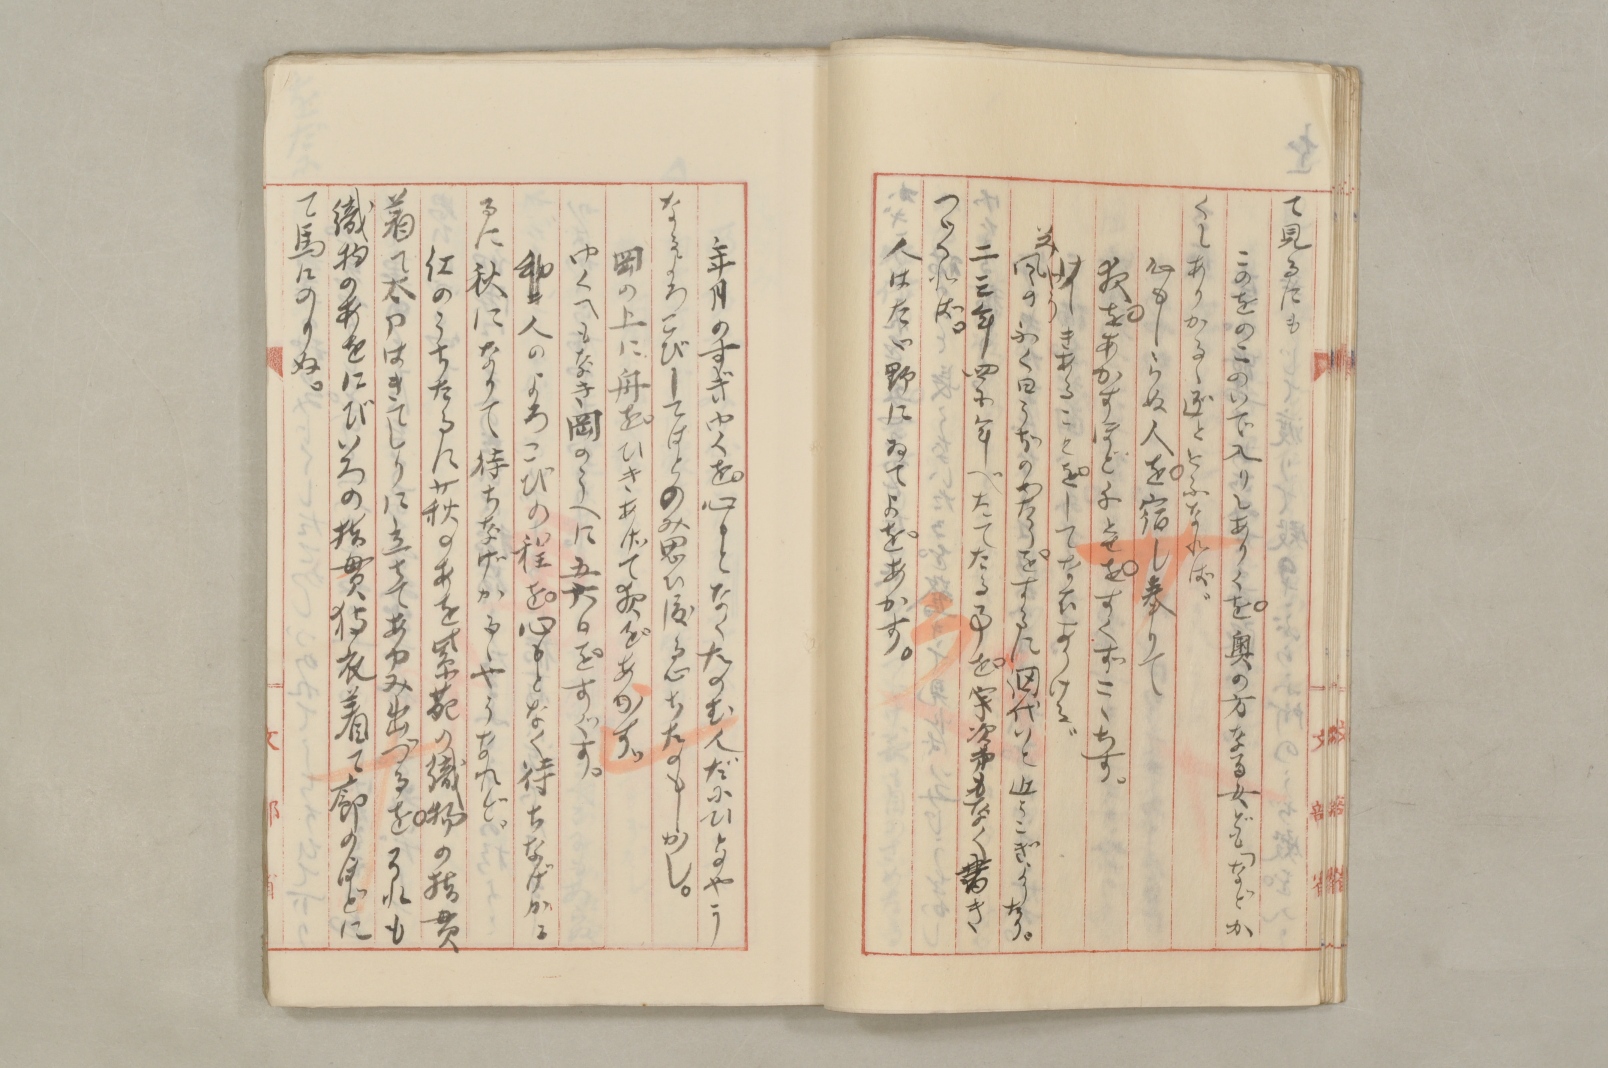 て見るにも
このをのこのいで入りしありくを。奥の方なる女ども「などか
くしありかるゝ道ととふなれば
心もしらぬ人を。宿し奉りて
夜をあかすほど千とせを。すぐすこゝちす。
けしきあることを。してなむありける
風のふく日うなのわたりを。するに網代いと近うこぎよりな。
二三年四五年へだてたる事を。次第もなく書き
つゞくれば。
人はたゞ野にゐてよを。あかす。
年月のすぎゆくを。心もとなくたのむ人だにひとのやう
なるよろこびしてばとのみ思ひ渡る心ちたのもしかし。
岡の上に舟を。ひきあげて夜をあかす。
ゆくへもなき岡のうへに五六日を。すぐす。
人のよろこびの程を。心もとなく待ちなげかる
るに秋になりて、待ちなげかるゝやうなれど。
紅のうちたるに萩のあを紫苑の織物の指貫
着て太刀はきてしりに立ちてあゆみ出づるを。それも
織物のあをにびいろの指貫狩衣着て廊のほどに
て馬にのりぬ。
文部省